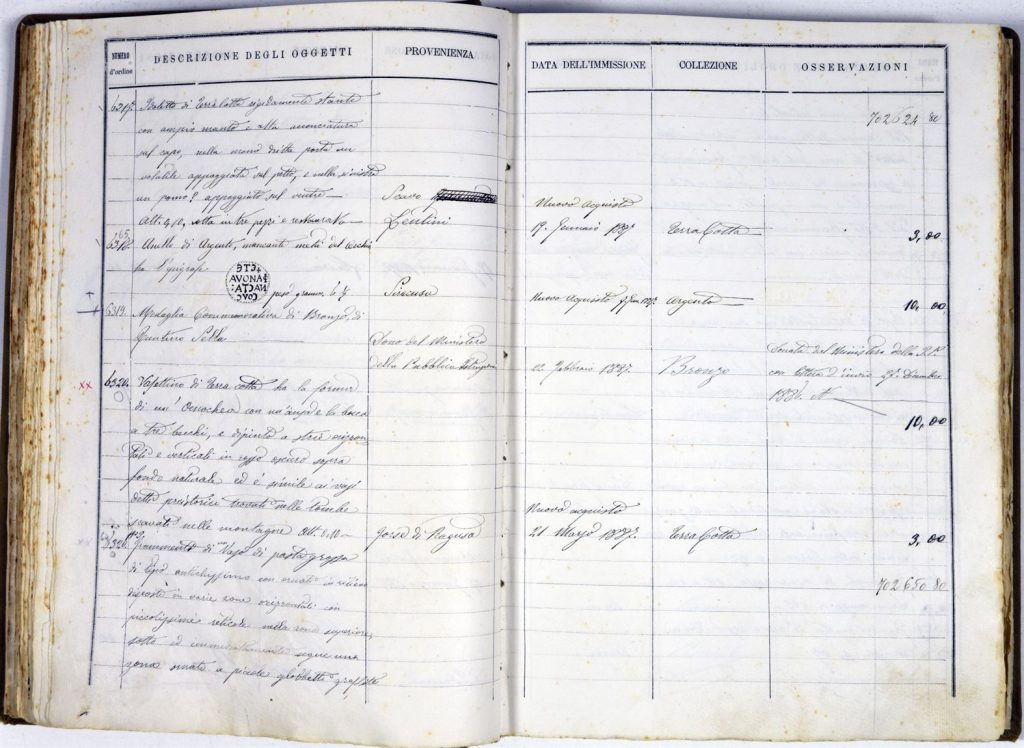 NUMERO d'ordine
DESCRIZIONE DEGLI OGGETTI
PROVENIENZA
DATA DELL'IMMISSIONE
COLLEZIONE
OSSERVAZIONI
702624 80
6317 di terracotta rigidamente stante
con ampio manto e alta acconciatura
sul capo, nella mano dritta porta un
volatile appoggiato sul petto, e nella sinistra
un pomo? appoggiato sul ventre —
Scavo
Nuovo acquisto
Alt. 0, rotta in tre pezzi e restaurata —
Lentini
19. Gennaio 1887.
terra Cotta —
3,00
6318. Anello di Argento, mancante metà del
ha l'epigrafe
pesa grammi 6 ½
Siracusa
Nuovo Acquisto
argento —
10,00
6319. Medaglia Commemorativa di Bronzo, di
Quintino Sella
Dono del Ministero
della Pubblica Istruzione
22 Febbraio 1887.
Bronzo
Donata dal Ministero della P. I.
con lettera d'invio 27. Dicembre
1886.
10,00
xx
6320. Vasettino di terra cotta ha la forma
di un' Oenochoe con un'ansa e la bocca
a tre becchi, e dipinto a strie orizzon
tali e verticali in rosso oscuro sopra
fondo naturale ed è simile ai vasi
detti preistorici trovati nelle tombe
scavate nelle montagne Alt. 0,
Gorse di Ragusa
Nuovo acquisto
21 Marzo 1887.
terra Cotta
3,00
Frammento di Vaso di pasta grezza
di tipo antichissimo con ornati in rilievo
disposti in varie zone orizzontali con
piccolissime reticole nella zona superiore,
sotto ed immediatamente segue una
zona ornata a piccole globbetti
702650 80